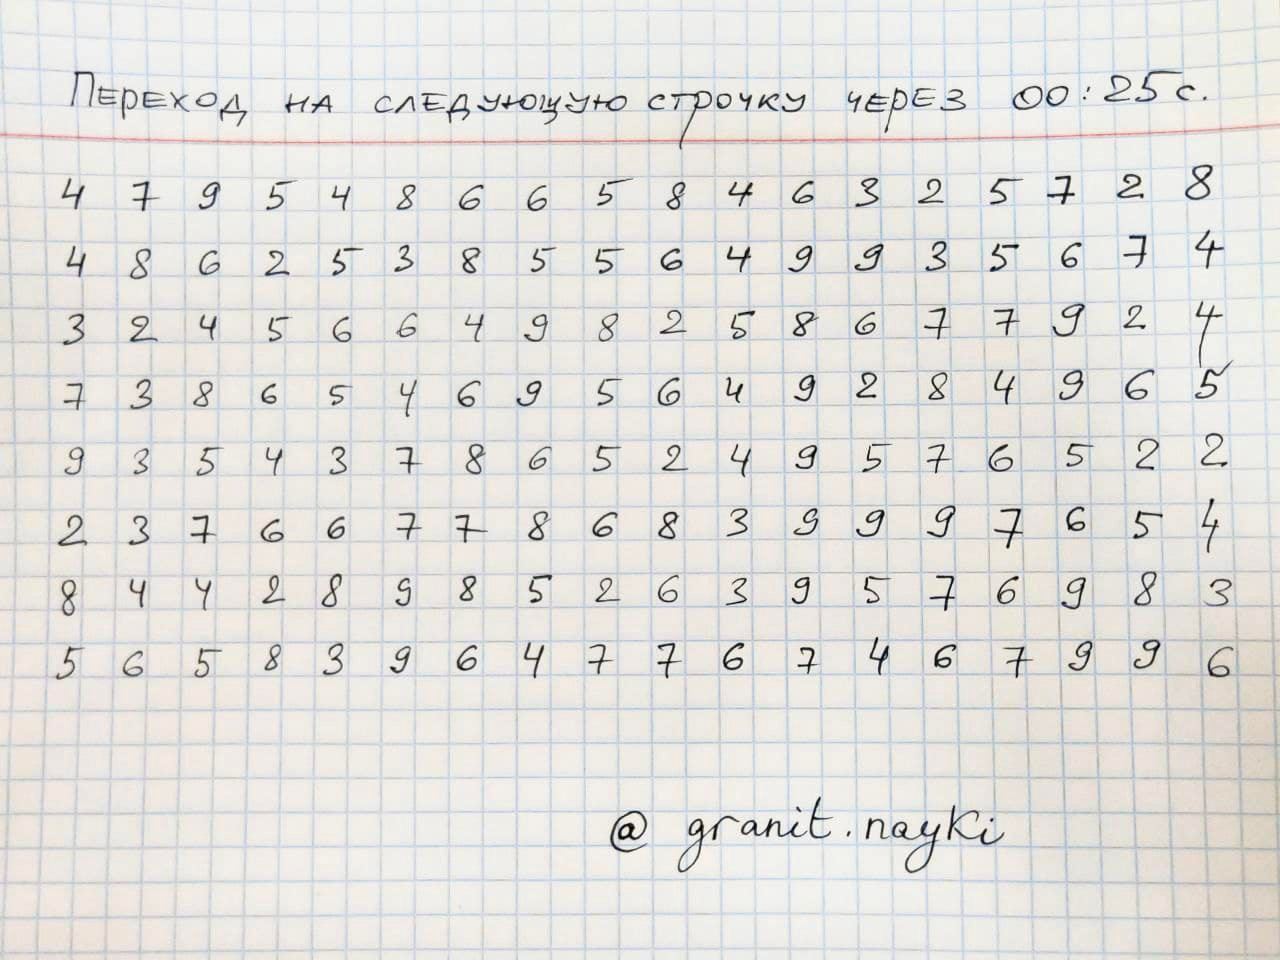 Переход на следующую строчку через 00:25 с.
4 7 9 5 4 8 6 6 5 8 4 6 3 2 5 7 2 8
4 8 6 2 5 3 8 5 5 6 4 9 9 3 5 6 7 4
3 2 4 5 6 6 4 9 8 2 5 8 6 7 7 9 2 4
7 3 8 6 5 4 6 9 5 6 4 9 2 8 4 9 6 5
9 3 5 4 3 7 8 6 5 2 4 9 5 7 6 5 2 2
2 3 7 6 6 7 7 8 6 8 3 9 9 9 7 6 5 4
8 4 4 2 8 9 8 5 2 6 3 9 5 7 6 9 8 3
5 6 5 8 3 9 6 4 7 7 6 7 4 6 7 9 9 6
@ granit.nayki